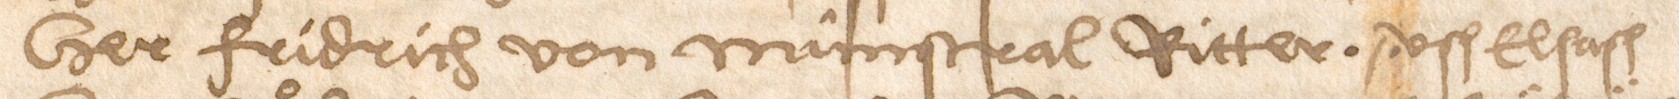 Her fridrich von münstral Ritter. vsß Elsasß